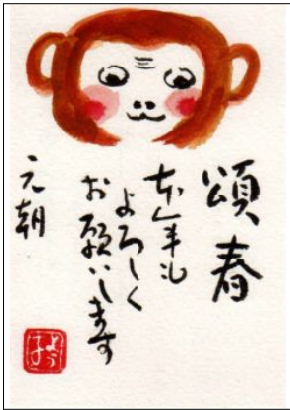 頌春
本年も
よろしく
お願いします
元朝